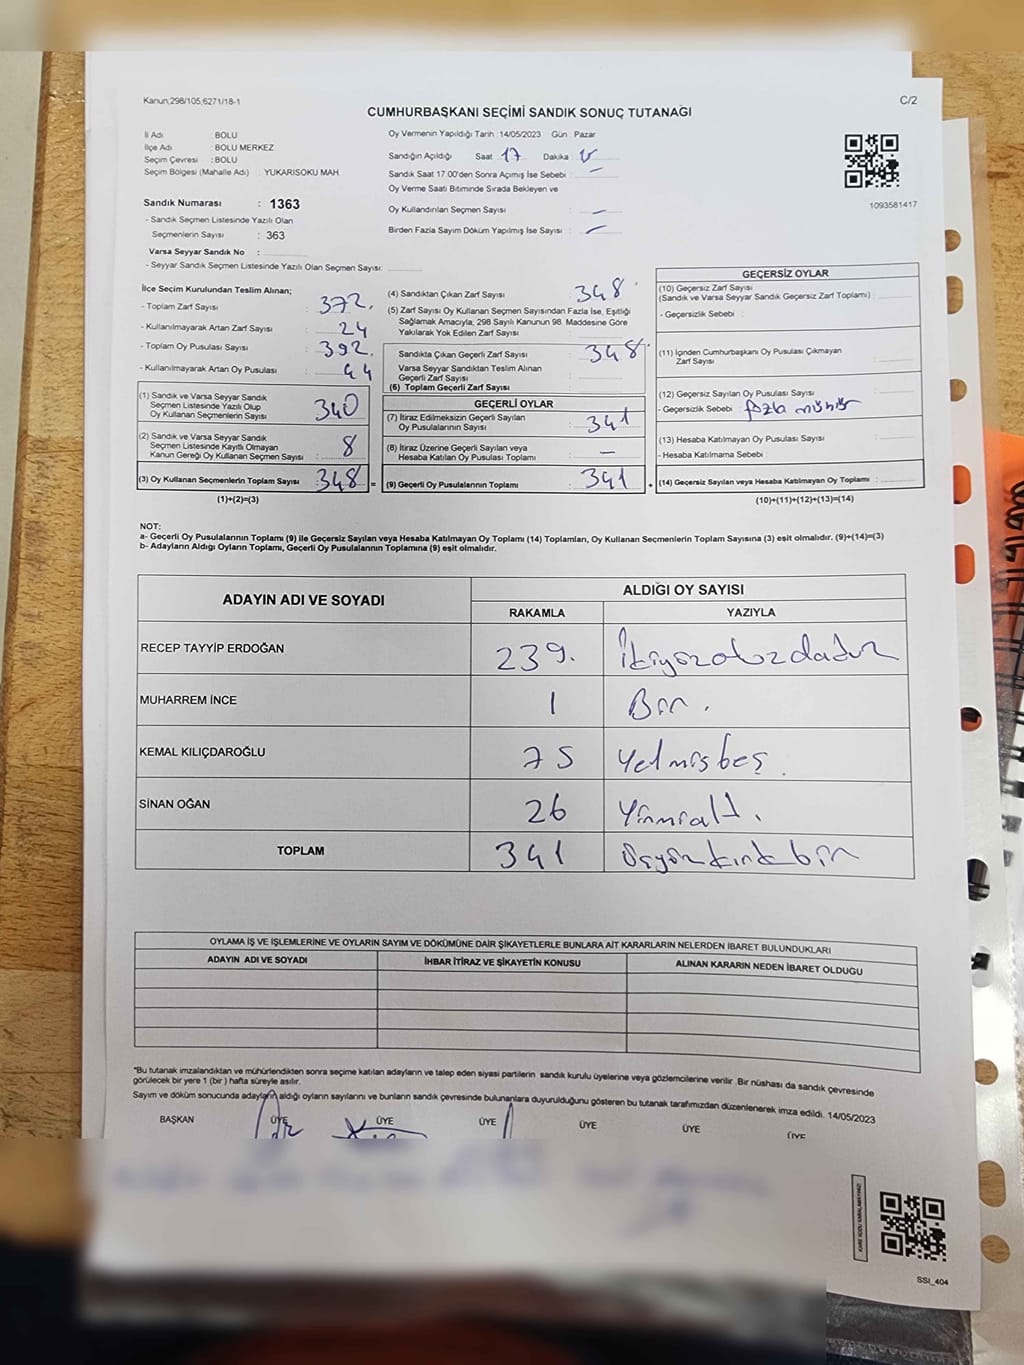 Kanun;298/105,6271/18-1
C/2
CUMHURBAŞKANI SEÇİMİ SANDIK SONUÇ TUTANAĞI
İl Adı : BOLU
İlçe Adı : BOLU MERKEZ
Seçim Çevresi : BOLU
Seçim Bölgesi (Mahalle Adı) : YUKARISOKU MAH.
Sandık Numarası : 1363
- Sandık Seçmen Listesinde Yazılı Olan
Seçmenlerin Sayısı : 363
Varsa Seyyar Sandık No :
- Seyyar Sandık Seçmen Listesinde Yazılı Olan Seçmen Sayısı:
Oy Vermenin Yapıldığı Tarih :14/05/2023 Gün : Pazar
Sandığın Açıldığı Saat : 17 Dakika :
Sandık Saat 17.00'den Sonra Açımış İse Sebebi : —
Oy Verme Saati Bitiminde Sırada Bekleyen ve
Oy Kullandırılan Seçmen Sayısı : —
Birden Fazla Sayım Döküm Yapılmış İse Sayısı : —
1093581417
İlçe Seçim Kurulundan Teslim Alınan;
- Toplam Zarf Sayısı : 372.
- Kullanılmayarak Artan Zarf Sayısı : 24
- Toplam Oy Pusulası Sayısı : 392.
- Kullanılmayarak Artan Oy Pusulası : 44
(1) Sandık ve Varsa Seyyar Sandık
Seçmen Listesinde Yazılı Olup
Oy Kullanan Seçmenlerin Sayısı : 340
(2) Sandık ve Varsa Seyyar Sandık
Seçmen Listesinde Kayıtlı Olmayan
Kanun Gereği Oy Kullanan Seçmen Sayısı : 8
(3) Oy Kullanan Seçmenlerin Toplam Sayısı : 348 =
(1)+(2)=(3)
(4) Sandıktan Çıkan Zarf Sayısı : 348
(5) Zarf Sayısı Oy Kullanan Seçmen Sayısından Fazla İse, Eşitliği
Sağlamak Amacıyla, 298 Sayılı Kanunun 98. Maddesine Göre
Yakılarak Yok Edilen Zarf Sayısı :
Sandıkta Çıkan Geçerli Zarf Sayısı : 348
Varsa Seyyar Sandıktan Teslim Alınan
Geçerli Zarf Sayısı :
(6) Toplam Geçerli Zarf Sayısı :
GEÇERLİ OYLAR
(7) İtiraz Edilmeksizin Geçerli Sayılan
Oy Pusulalarının Sayısı : 341
(8) İtiraz Üzerine Geçerli Sayılan veya
Hesaba Katılan Oy Pusulası Toplamı : —
(9) Geçerli Oy Pusulalarının Toplamı : 341 +
GEÇERSİZ OYLAR
(10) Geçersiz Zarf Sayısı
(Sandık ve Varsa Seyyar Sandık Geçersiz Zarf Toplamı) :
- Geçersizlik Sebebi :
(11) İçinden Cumhurbaşkanı Oy Pusulası Çıkmayan
Zarf Sayısı :
(12) Geçersiz Sayılan Oy Pusulası Sayısı :
- Geçersizlik Sebebi : fazla mühür
(13) Hesaba Katılmayan Oy Pusulası Sayısı :
- Hesaba Katılmama Sebebi :
(14) Geçersiz Sayılan veya Hesaba Katılmayan Oy Toplamı :
(10)+(11)+(12)+(13)=(14)
NOT:
a- Geçerli Oy Pusulalarının Toplamı (9) ile Geçersiz Sayılan veya Hesaba Katılmayan Oy Toplamı (14) Toplamları, Oy Kullanan Seçmenlerin Toplam Sayısına (3) eşit olmalıdır. (9)+(14)=(3)
b- Adayların Aldığı Oyların Toplamı, Geçerli Oy Pusulalarının Toplamına (9) eşit olmalıdır.
ADAYIN ADI VE SOYADI ALDIĞI OY SAYISI
RAKAMLA YAZIYLA
RECEP TAYYİP ERDOĞAN 239. İkiyüzotuzdokuz
MUHARREM İNCE 1 Bir.
KEMAL KILIÇDAROĞLU 75 Yetmişbeş.
SİNAN OĞAN 26 Yirmialtı.
TOPLAM 341 Üçyüzkırkbir
OYLAMA İŞ VE İŞLEMLERİNE VE OYLARIN SAYIM VE DÖKÜMÜNE DAİR ŞİKAYETLERLE BUNLARA AİT KARARLARIN NELERDEN İBARET BULUNDUKLARI
ADAYIN ADI VE SOYADI İHBAR İTİRAZ VE ŞİKAYETİN KONUSU ALINAN KARARIN NEDEN İBARET OLDUĞU
"Bu tutanak imzalandıktan ve mühürlendikten sonra seçime katılan adayların ve talep eden siyasi partilerin sandık kurulu üyelerine veya gözlemcilerine verilir .Bir nüshası da sandık çevresinde
görülecek bir yere 1 (bir ) hafta süreyle asılır.
Sayım ve döküm sonucunda adayların aldığı oyların sayılarını ve bunların sandık çevresinde bulunanlara duyurulduğunu gösteren bu tutanak tarafımızdan düzenlenerek imza edildi. 14/05/2023
BAŞKAN ÜYE ÜYE ÜYE ÜYE ÜYE ÜYE
KARE KODU KARALAMAYINIZ!
SSI_404